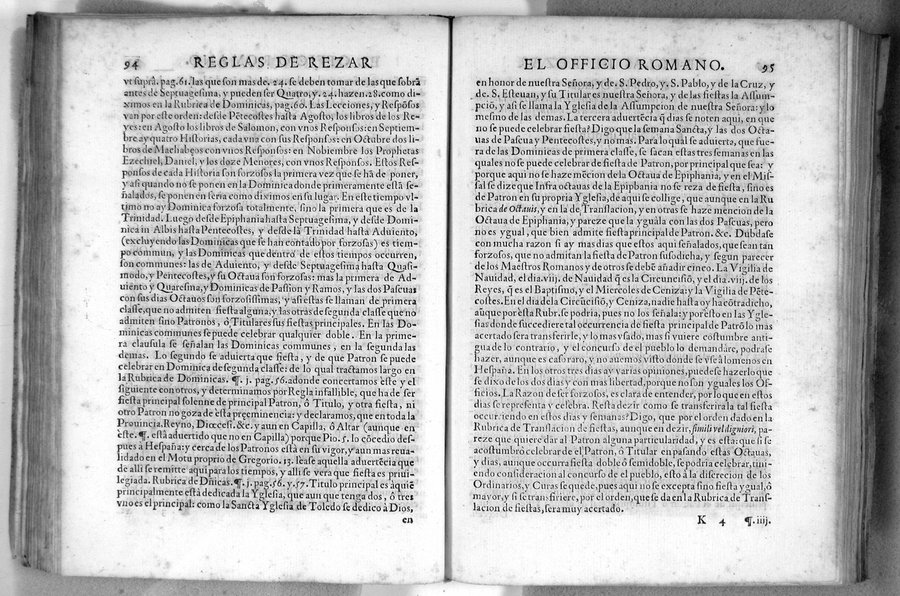 94 REGLAS DE REZAR
vt suprà. pag. 61. las que son mas de. 24. se deben tomar de las que sobrã
antes de Septuagesima, y pueden ser Quatro, y. 24. hazen. 28. como di
ximos en la Rubrica de Dominicas, pag. 60. Las Lecciones, y Respõsos
van por este orden: desde Pẽtecostes hasta Agosto, los libros de los Re-
yes: en Agosto los libros de Salomon, con vnos Responsos: en Septiem-
bre ay quatro Historias, cada vna con sus Responsos: en Octubre dos li-
bros de Machabęos con vnos Responsos: en Nobiembre los Prophetas
Ezechiel, Daniel, y los doze Menores, con vnos Responsos. Estos Res-
ponsos de cada Historia son forzosos la primera vez que se hã de poner,
y asi quando no se ponen en la Dominica donde primeramente estã se-
ñalados, se ponen en feria como diximos en su lugar. En este tiempo vl-
timo no ay Dominica forzosa totalmente, sino la primera que es de la
Trinidad. Luego desde Epiphania hasta Septuagesima, y desde Domi-
nica in Albis hasta Pentecostes, y desde la Trinidad hasta Aduiento,
(excluyendo las Dominicas que se han contado por forzosas) es tiem-
po commun, y las Dominicas que dentro de estos tiempos occurren,
son communes: las de Aduiento, y desde Septuagesima hasta Quasi-
modo, y Pentecostes, y su Octaua son forzosas: mas la primera de Ad-
uiento y Quaresma, y Dominicas de Passion y Ramos, y las dos Pascuas
con sus dias Octauos son forzosissimas, y asi estas se llaman de primera
classe, que no admiten fiesta alguna, y las otras de segunda classe que no
admiten sino Patronos, ó Titulares sus fiestas principales. En las Do-
minicas communes se puede celebrar qualquier doble. En la prime-
ra clausula se señalan las Dominicas communes, en la segunda las
demas. Lo segundo se aduierta que fiesta, y de que Patron se puede
celebrar en Dominica de segunda classe: de lo qual tractamos largo en
la Rubrica de Dominicas. ¶. j. pag. 56. adonde concertamos este y el
siguiente con otros, y determinamos por Regla infallible, que ha de ser
fiesta principal solenne de principal Patron, ó Titulo, y otra fiesta, ni
otro Patron no goza de esta preeminencia: y declaramos, que en toda la
Prouincia, Reyno, Diœcesi. &c. y aun en Capilla, ó Altar (aunque en
este. ¶. está aduertido que no en Capilla) porque Pio. 5. lo cõcedio des-
pues à Hespaña: y cerca de los Patronos està en su vigor, y aun mas reua-
lidado en el Motu proprio de Gregorio. 13. lèase aquella aduertẽcia que
de alli se remitte aqui para los tiempos, y alli se vera que fiesta es priui-
legiada. Rubrica de Dñicas. ¶. j. pag. 56. y. 57. Titulo principal es aquiẽ
principalmente està dedicada la Yglesia, que aun que tenga dos, ó tres
vno es el principal: como la Sancta Yglesia de Toledo se dedico à Dios,
en
EL OFFICIO ROMANO. 95
en honor de nuestra Señora, y de. S. Pedro, y. S. Pablo, y de la Cruz, y
de. S. Esteuan, y su Titular es nuestra Señora, y de las fiestas la Assum-
pciõ, y asi se llama la Yglesia de la Assumpcion de nuestra Señora: y lo
mesmo de las demas. La tercera aduertẽcia q̃ dias se noten aqui, en que
no se puede celebrar fiesta? Digo que la semana Sancta, y las dos Octa-
uas de Pascua y Pentecostes, y no mas. Para lo qual se aduierta, que fue-
ra de las Dominicas de primera classe, se sacan estas tres semanas en las
quales no se puede celebrar de fiesta de Patron, por principal que sea: y
porque aqui no se haze mẽcion de la Octaua de Epiphania, y en el Mis-
sal se dize que Infra octauas de la Epiphania no se reza de fiesta, sino es
de Patron en su propria Yglesia, de aqui se collige, que aunque en la Ru
brica de Octauis, y en la de Translacion, y en otras se haze mencion de la
Octaua de Epiphania, y pareze que la yguala con las dos Pascuas, pero
no es ygual, que bien admite fiesta principal de Patron. &c. Dùbdase
con mucha razon si ay mas dias que estos aqui señalados, que sean tan
forzosos, que no admitan la fiesta de Patron susodicha, y segun parecer
de los Maestros Romanos y de otros se debẽ añadir cinco. La Vigilia de
Nauidad, el dia. viij. de Nauidad q̃ es la Circuncisiõ, y el dia. viij. de los
Reyes, q̃ es el Baptismo, y el Miercoles de Ceniza: y la Vigilia de Pẽte-
costes. En el dia dela Circũcisiõ, y Ceniza, nadie hasta oy ha cõtradicho,
aũque por esta Rubr. se podria, pues no los señala: y por esto en las Ygle-
sias donde succediere tal occurrencia de fiesta principal de Patrõ lo mas
acertado sera transferirle, y lo mas vsado, mas si vuiere costumbre anti-
gua de lo contrario, y el concurso de el pueblo lo demandàre, podrase
hazer, aunque es caso raro, y no auemos visto donde se vse à lo menos en
Hespaña. En los otros tres dias ay varias opiniones, puede se hazer lo que
se dixo de los dos dias y con mas libertad, porque no son yguales los Of-
ficios. La Razon de ser forzosos, es clara de entender, por lo que en estos
dias se representa y celebra. Resta dezir como se transferirà la tal fiesta
occurriendo en estos dias y semanas? Digo, que por el orden dado en la
Rubrica de Translacion de fiestas, aunque en dezir, simili vel digniori, pa-
reze que quiere dàr al Patron alguna particularidad, y es esta: que si se
acostumbrò celebrar de el Patron, ò Titular en pasando estas Octauas,
y dias, aunque occurra fiesta doble ò semidoble, se podria celebrar, tiui-
endo consideracion al concurso de el pueblo, esto à la discrecion de los
Ordinarios, y Curas se quede, pues aqui no se excepta sino fiesta ygual, ò
mayor, y si se transfiriere, por el orden, que se da en la Rubrica de Trans-
lacion de fiestas, sera muy acertado.
K 4 ¶. iiij.